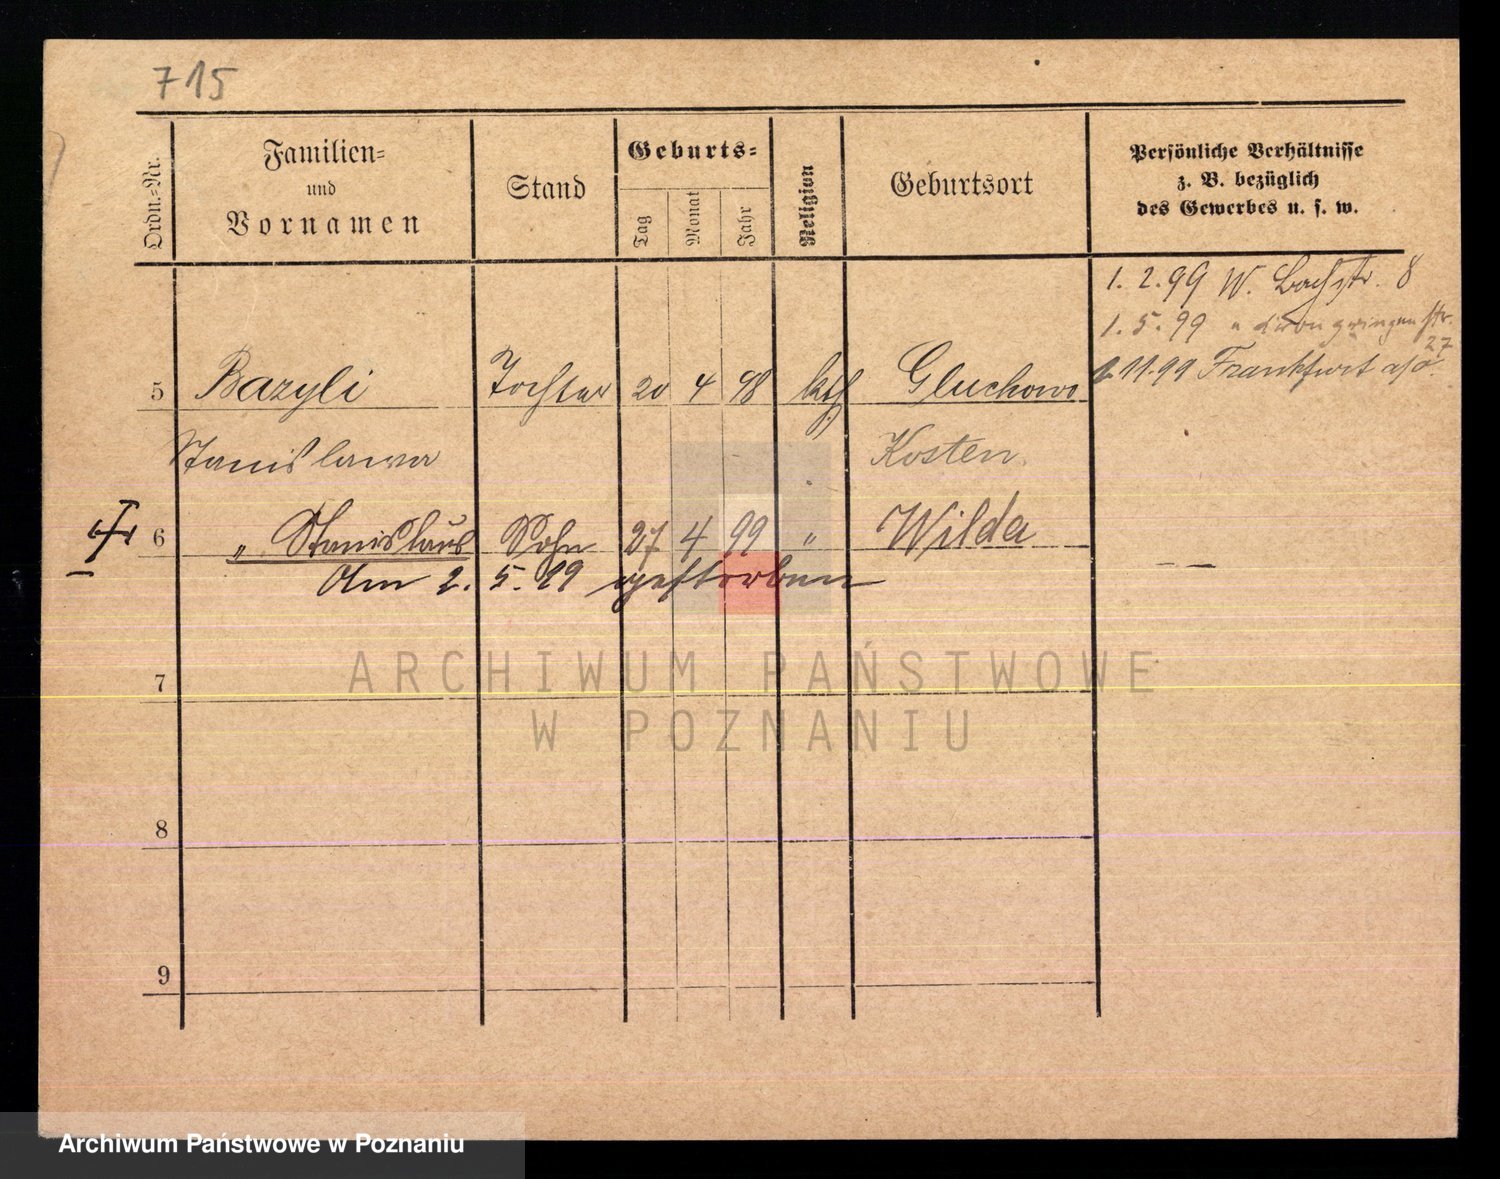 715
Ordn.-Nr.
Familien-
und
Vornamen
Stand
Geburts-
Tag
Monat
Jahr
Religion
Geburtsort
Persönliche Verhältnisse
z. B. bezüglich
des Gewerbes u. s. w.
1. 2. 99 W. Bachstr. 8
1. 5. 99 " Kronprinzenstr. 27
1. 11. 99 Frankfurt a/O.
5 Bazyli Tochter 20 4 98 kth Gluchowo
Stanislawa Kosten
6 " Stanislaus Sohn 27 4 99 " Wilda
Am 2. 5. 99 gestorben
7
8
9
ARCHIWUM PAŃSTWOWE
W POZNANIU
Archiwum Państwowe w Poznaniu